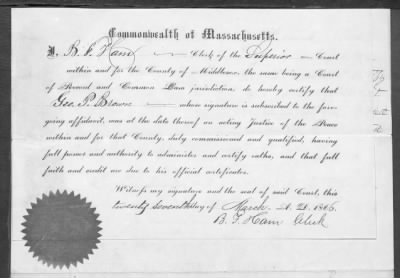 Commonwealth of Massachusetts.
I, B. F. Ham Clerk of the Superior Court
within and for the County of Middlesex, the same being a Court
of Record and Common Law jurisdiction, do hereby certify that
Geo. P. Brown whose signature is subscribed to the fore-
going affidavit, was at the date thereof an acting Justice of the Peace
within and for that County, duly commissioned and qualified, having
full power and authority to administer and certify oaths, and that full
faith and credit are due to his official certificates.
Witness my signature and the seal of said Court, this
twenty seventh day of March A. D. 1866.
B. F. Ham Clerk